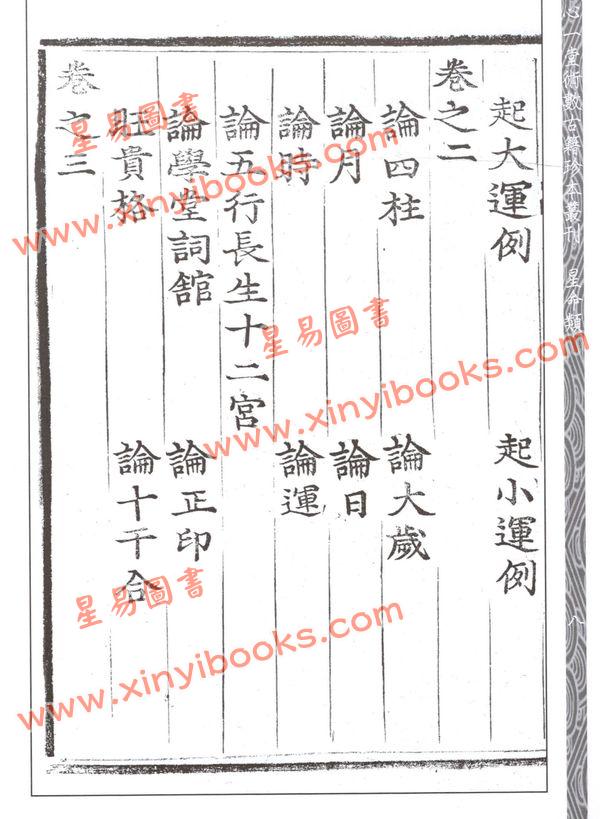 心一堂術數古籍珍本叢刊 星命類
八
起大運例 起小運例
卷之二
論四柱 論大歲
論月 論日
論時 論運
論五行長生十二宮
論學堂詞館 論正印
旺貴格 論十干合
卷之三
星易圖書
www.xinyibooks.com
星易圖書
www.xinyibooks.com
星易圖書
www.xinyibooks.com